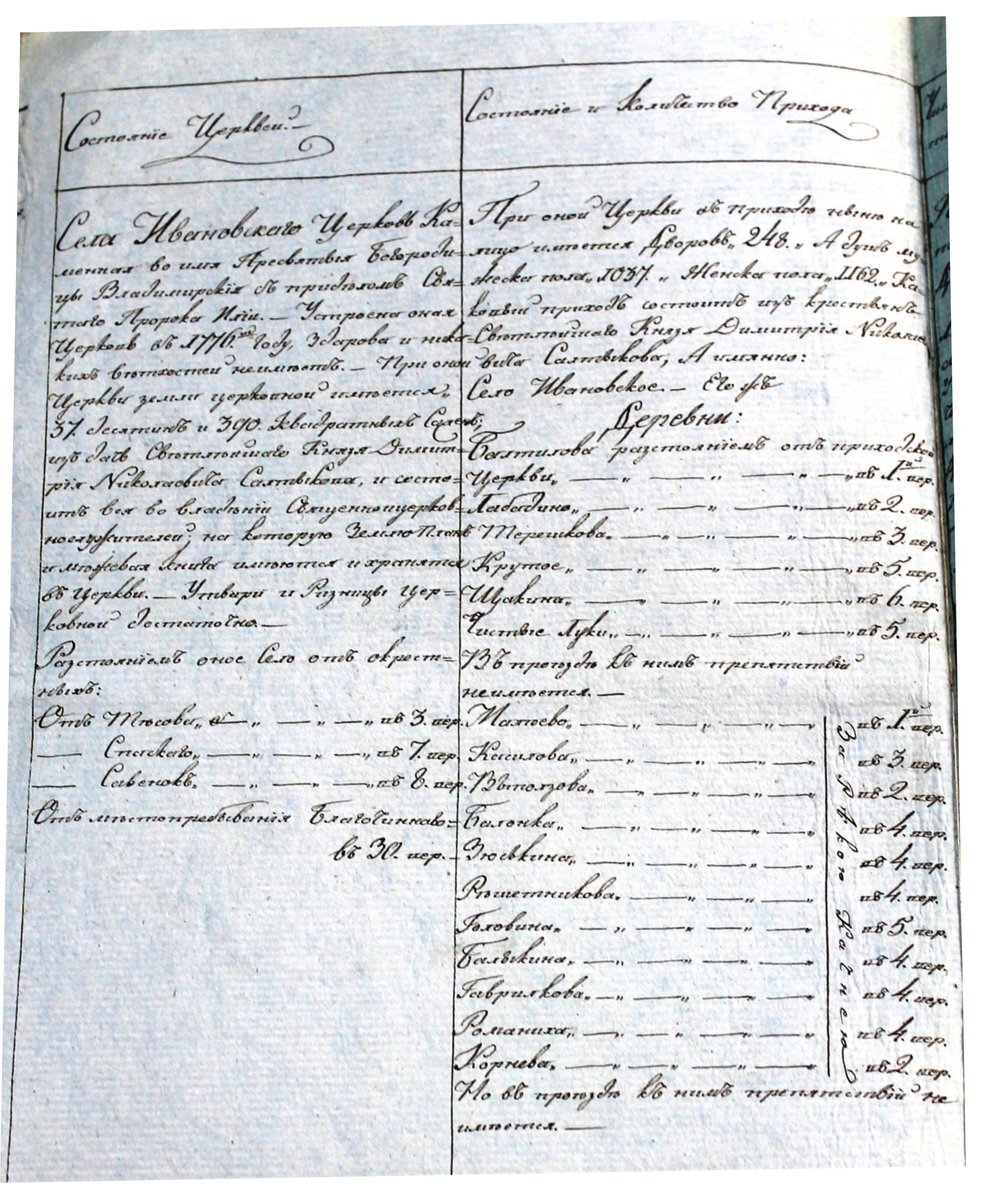 Состояніе Церквей. —
Села Ивановскаго Церковь Ка=
менная во имя Пресвятыя Богороди=
цы Владимирскія съ придѣломъ Свя=
таго Пророка Иліи. — Устроена оная
Церковь въ 1776.мъ Году, Здарова и ника=
кихъ вѣтхостей неимѣетъ. — При оной
Церкви земли церковной имѣется„
37. десятинъ и 390. Квадратныхъ Сажень;
изъ дачь Свѣтлѣйшаго Князя Димит=
рія Николаевича Салтыкова, и состо=
итъ вся во владѣніи Священноцерков=
нослужителей; на которую Землю Планъ
и межевая книга имѣются и хранятся
въ Церкви. — Утвари и Ризницы Цер=
ковной достаточно. —
Разстояніемъ оное Село отъ окрест=
ныхъ:
Отъ Тѣсова„ — „ — „ — „ въ 3. вер.
— Спаскаго„ — „ — „ — „ въ 7. вер.
— Савенокъ„ — „ — „ — „ въ 8. вер.
Отъ мѣстопребыванія Благочиннаго=
въ 30. вер. —
Состояніе и Количество Прихода
При оной Церкви въ приходѣ нынѣ на
лицо имѣется Дворовъ„ 248. „ А душъ му=
жеска пола„ 1037. „ Женска пола„ 1162„ Ка=
ковый приходъ состоитъ изъ крестьянъ
Свѣтлѣйшаго Князя Димитрія Николае=
вича Салтыкова, А имянно:
Село Ивановское. — Его жъ
Деревни:
Баятилова разстояніемъ отъ приходской
Церкви„ — „ — „ — „ — „ въ 1й вер.
Лабадино„ — „ — „ — „ въ 2. вер.
Терешкова„ — „ — „ — „ въ 3. вер.
Крутое„ — „ — „ — „ — „ въ 5. вер.
Щакина„ — „ — „ — „ — „ въ 6. вер.
Чистые Луки„ — „ — „ — „ въ 5. вер.
Въ проѣздѣ къ нимъ препятствій
неимѣется. —
Малѣево„ — „ — „ — „ — „ въ 1й вер.
Касилова„ — „ — „ — „ — „ въ 3. вер.
Выползова„ — „ — „ — „ въ 2. вер.
Балонка„ — „ — „ — „ — „ въ 4. вер.
Зюзькина„ — „ — „ — „ — „ въ 4. вер.
Рѣшетникова„ — „ — „ — „ въ 4. вер.
Головина„ — „ — „ — „ — „ въ 5. вер.
Балыкина„ — „ — „ — „ — „ въ 4. вер.
Гаврилкова„ — „ — „ — „ — „ въ 4. вер.
Романиха„ — „ — „ — „ — „ въ 4. вер.
Корнева„ — „ — „ — „ — „ въ 2. вер.
За Рѣкою Качнею
Но въ проѣздѣ къ нимъ препятствій не
имѣется. —